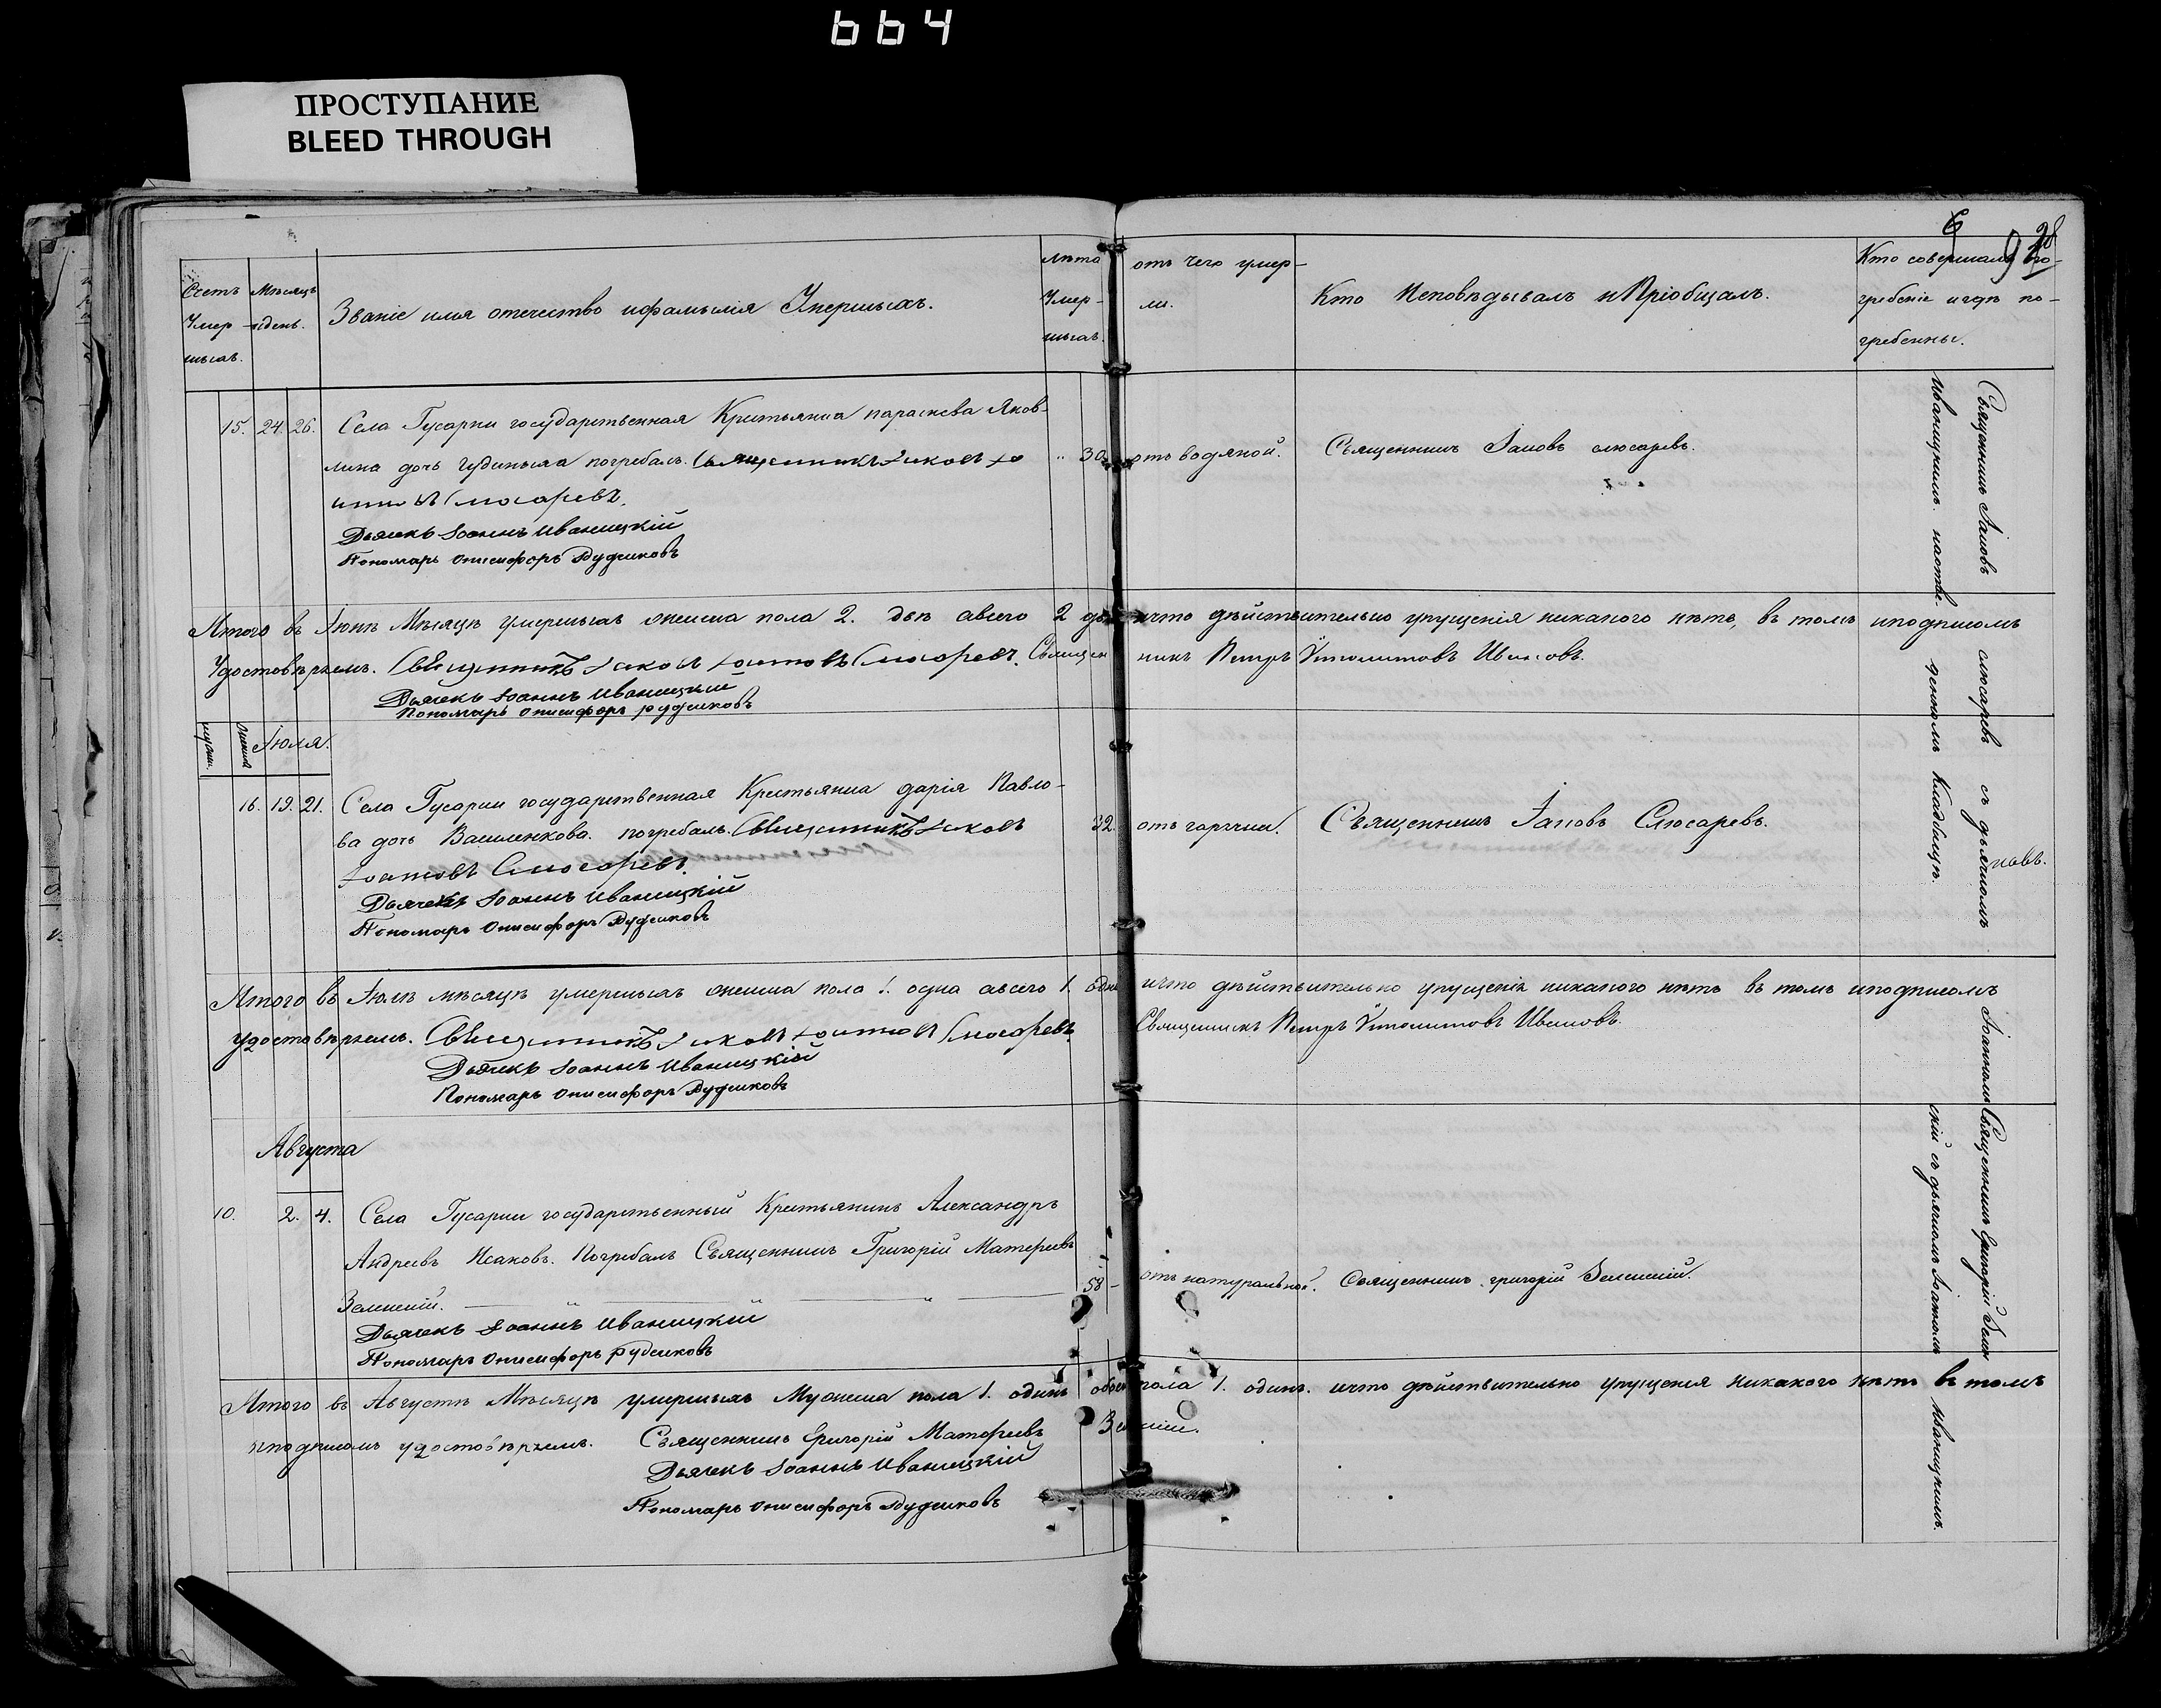 664
ПРОСТУПАНИЕ
BLEED THROUGH
6
98
Счетъ Умершыхъ.
Мѣсяцъ идень.
Званіе имя отечество ифамылія Умершыхъ.
лѣта Умершыхъ.
отъ чего умерли.
Кто Исповѣдывалъ и Пріобщалъ.
Кто совершалъ погребеніе игдѣ погребенны.
15. 24. 26. Села Гусарки государственная Крестьянка параскева Яковлина дочь погребалъ. Священникъ Іаковъ
Слюсаревъ.
Дьячекъ Іоаннъ Иваницкій
Пономарь Онисифоръ Рудчиковъ
30. отъ водяной. Священникъ Іаковъ слюсаревъ.
Итого въ Іюнѣ Мѣсяцѣ умершыхъ женска пола 2. двѣ авсего 2 двѣ ичто дѣйствительно упущенія никакого нѣтъ, въ томъ иподписомъ
Удостовѣряемъ. Священникъ Іаковъ Слюсаревъ. Священникъ Петръ Ипполитовъ Ивановъ.
Дьячекъ Іоаннъ Иваницкій
Пономарь Онисифоръ рудчиковъ
мужск. женска Іюля.
16. 19. 21. Села Гусарки государственная Крестьянка дарія Павлова дочь Василенкова. погребалъ. Священникъ Іаковъ
Слюсаревъ.
Дьячекъ Іоаннъ Иваницкій
Пономарь Онисифоръ Рудчиковъ
32. отъ гарячки. Священникъ Іаковъ Слюсаревъ.
Священникъ Іаковъ слюсаревъ съ дьячкомъ Іоанномъ
Иваницкимъ наотведенномъ Кладбищѣ.
Итого въ Іюлѣ мѣсяцѣ умершыхъ женска пола 1. одна авсего 1. одна ичто дѣйствительно упущенія никакого нѣтъ въ томъ иподписомъ
удостовѣряемъ. Священникъ Іаковъ Слюсаревъ. Священникъ Петръ Ипполитовъ Ивановъ.
Дьячекъ Іоаннъ Иваницкій
Пономарь Онисифоръ Рудчиковъ
Августа
10. 2. 4. Села Гусарки государственный Крестьянинъ Александръ
Андреевъ Исаковъ. Погребалъ Священникъ Григорій Матфеевъ
Зеленскій.
Дьячекъ Іоаннъ Иваницкій
Пономарь Онисифоръ рудчиковъ
58 – отъ натуральной. Священникъ григорій Зеленскій.
Священникъ Григорій Зеленскій съ дьячкомъ Іоанномъ Иваницкимъ.
Итого въ Августѣ Мѣсяцѣ умершыхъ Мужеска пола 1. одинъ обоего пола 1. одинъ. ичто дѣйствительно упущенія никакого нѣтъ въ томъ
иподписомъ удостовѣряемъ. Священникъ Григорій Матфеевъ Зеленскій.
Дьячекъ Іоаннъ Иваницкій
Пономарь Онисифоръ Рудчиковъ